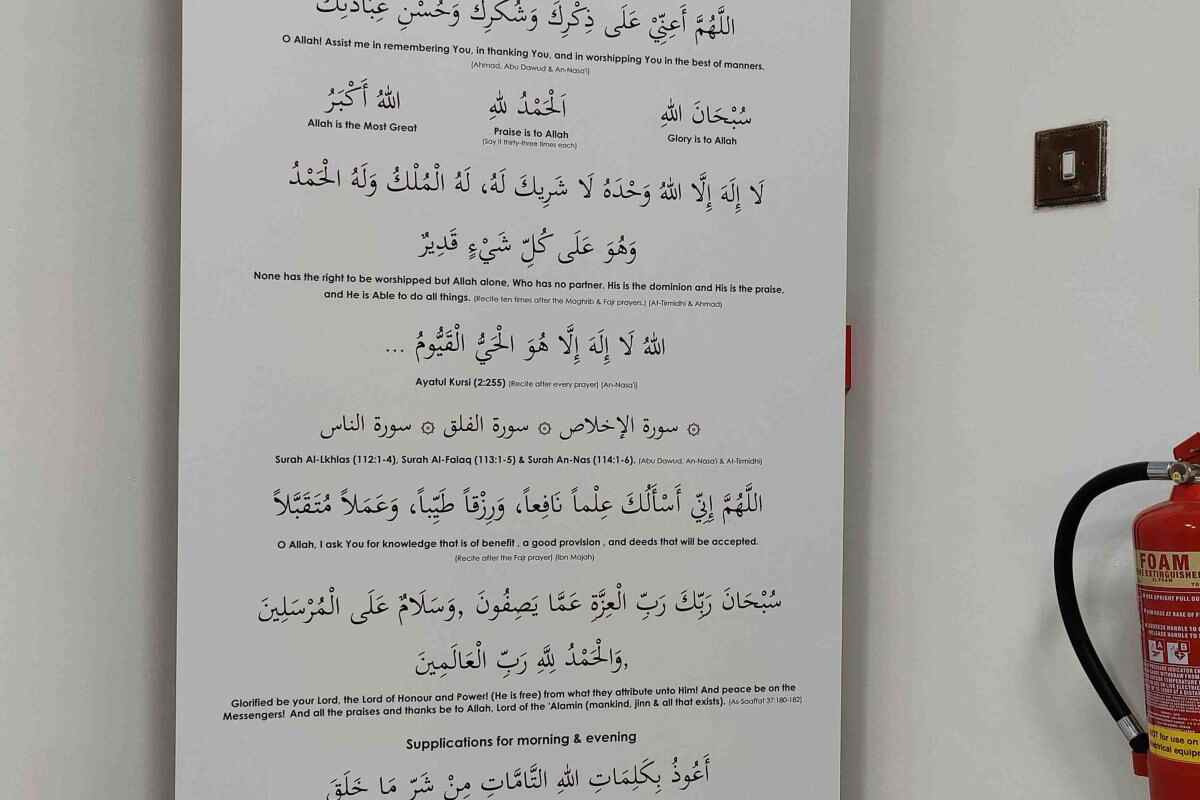 اللَّهُمَّ أَعِنِّيْ عَلَى ذِكْرِكَ وَشُكْرِكَ وَحُسْنِ عِبَادَتِكَ
O Allah! Assist me in remembering You, in thanking You, and in worshipping You in the best of manners.
(Ahmad, Abu Dawud & An-Nasa'i)
سُبْحَانَ اللهِ
Glory is to Allah
اَلْحَمْدُ لِلهِ
Praise is to Allah
(Say it thirty-three times each)
اللهُ أَكْبَرُ
Allah is the Most Great
لَا إِلَهَ إِلَّا اللهُ وَحْدَهُ لَا شَرِيكَ لَهُ، لَهُ الْمُلْكُ وَلَهُ الْحَمْدُ
وَهُوَ عَلَى كُلِّ شَيْءٍ قَدِيرٌ
None has the right to be worshipped but Allah alone, Who has no partner, His is the dominion and His is the praise,
and He is Able to do all things. (Recite ten times after the Maghrib & Fajr prayers.) (At-Tirmidhi & Ahmad)
اللهُ لَا إِلَهَ إِلَّا هُوَ الْحَيُّ الْقَيُّومُ ...
Ayatul Kursi (2:255) (Recite after every prayer) (An-Nasa'i)
۞ سورة الإخلاص ۞ سورة الفلق ۞ سورة الناس
Surah Al-Lkhlas (112:1-4), Surah Al-Falaq (113:1-5) & Surah An-Nas (114:1-6). (Abu Dawud, An-Nasa'i & At-Tirmidhi)
اللَّهُمَّ إِنِّي أَسْأَلُكَ عِلْماً نَافِعاً، وَرِزْقاً طَيِّباً، وَعَمَلاً مُتَقَبَّلاً
O Allah, I ask You for knowledge that is of benefit , a good provision , and deeds that will be accepted.
(Recite after the Fajr prayer) (Ibn Majah)
سُبْحَانَ رَبِّكَ رَبِّ الْعِزَّةِ عَمَّا يَصِفُونَ ,وَسَلَامٌ عَلَى الْمُرْسَلِينَ
,وَالْحَمْدُ لِلَّهِ رَبِّ الْعَالَمِينَ
Glorified be your Lord, the Lord of Honour and Power! (He is free) from what they attribute unto Him! And peace be on the
Messengers! And all the praises and thanks be to Allah, Lord of the 'Alamin (mankind, jinn & all that exists). (As-Saaffat 37:180-182)
Supplications for morning & evening
أَعُوذُ بِكَلِمَاتِ اللهِ التَّامَّاتِ مِنْ شَرِّ مَا خَلَقَ
FOAM
A B
NOT for use on